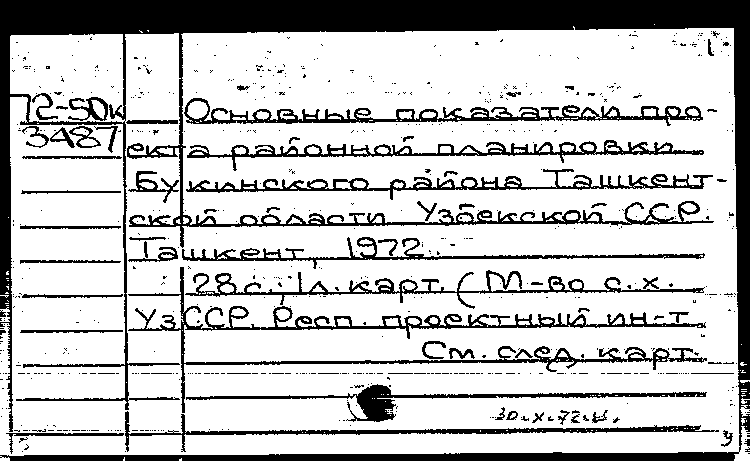 1
72-50к Основные показатели про-
3487 екта районной планировки
Букинского района Ташкент-
ской области Узбекской ССР.
Ташкент, 1972.
28 с.; 1 л. карт. (М-во с.х.
УзССР. Респ. проектный ин-т
См. след. карт.
30.X.72.
у